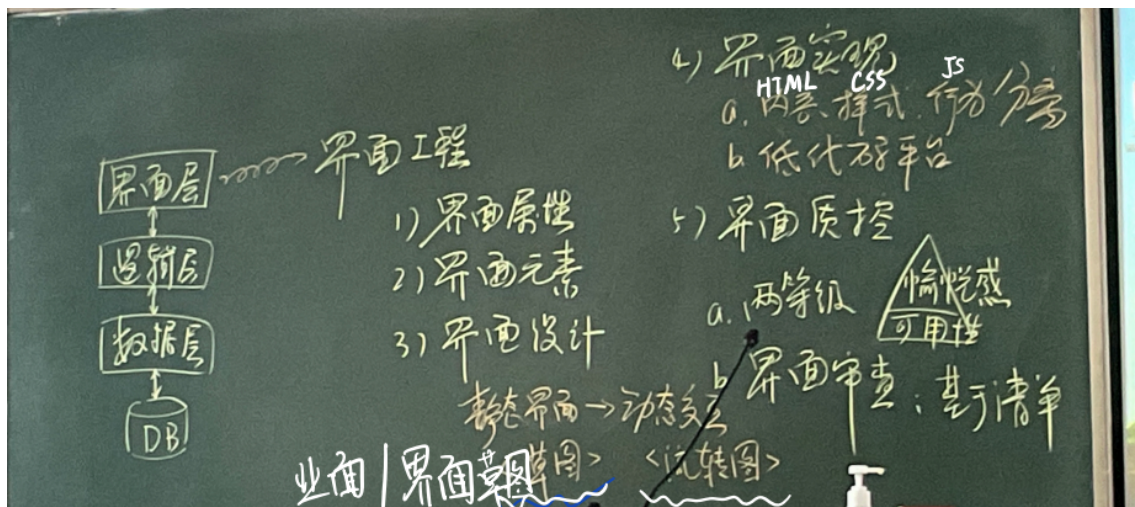 界面层
逻辑层
数据层
DB
界面工程
1) 界面属性
2) 界面元素
3) 界面设计
静态界面→动态交互
草图> <流转图>
业面|界面草图
4) 界面实现
HTML CSS JS
a. 内容、样式、行为分离
b. 低代码平台
5) 界面质控
a. 两等级
愉悦感
可用性
b 界面审查：基于清单